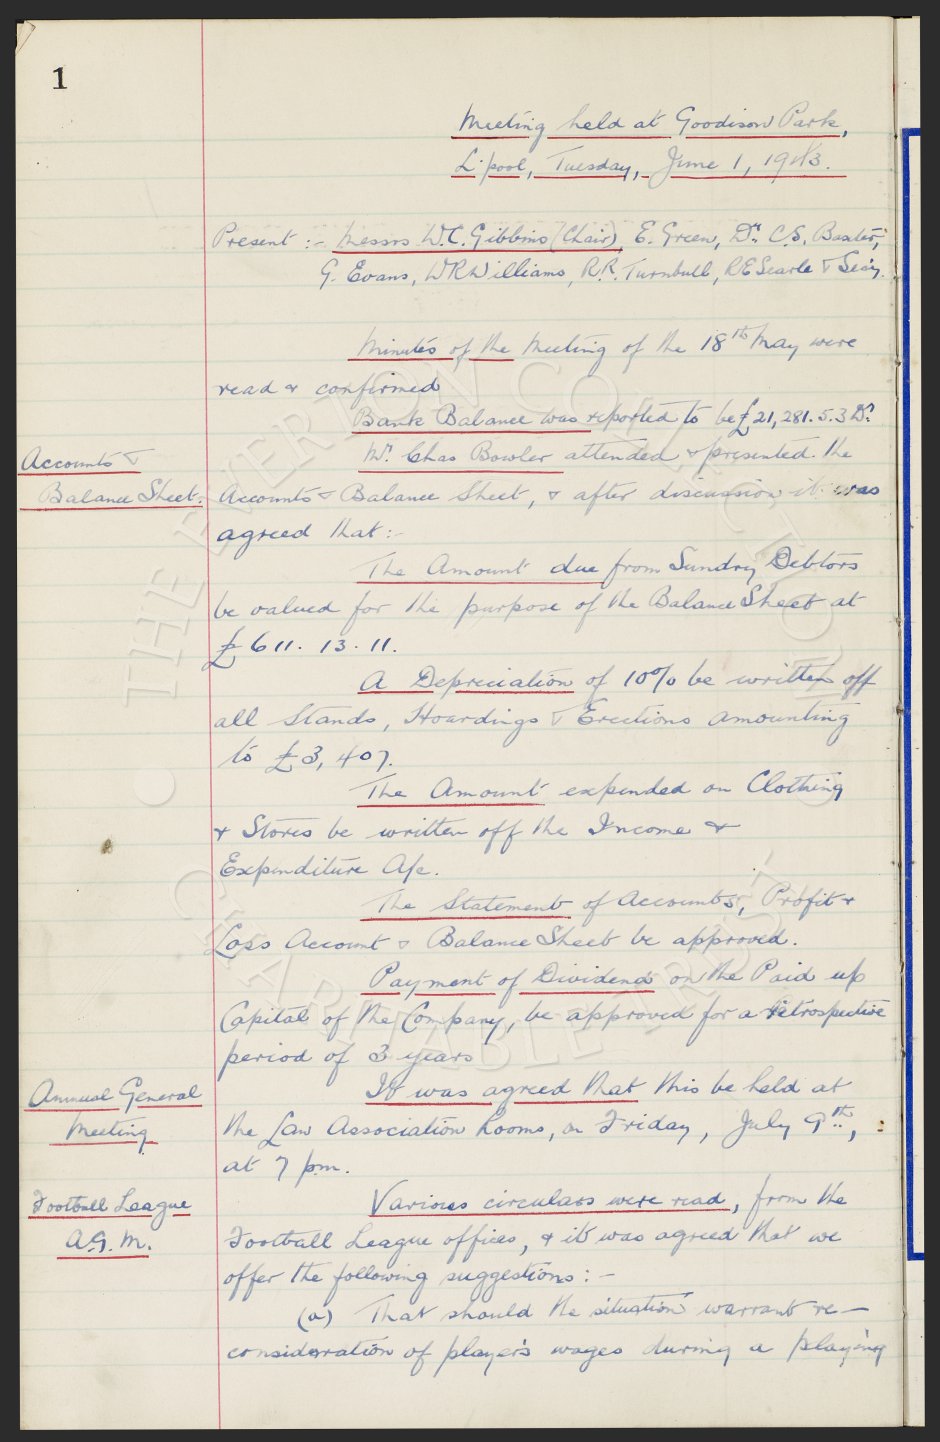 1
Meeting held at Goodison Park,
L'pool, Tuesday, June 1, 1943.
Present :- Messrs W.C. Gibbins (Chair), E. Green, Dr. C.S. Baxter,
G. Evans, W R Williams, R.R. Turnbull, R E Searle & Sec'y.
Minutes of the Meeting of the 18th May were
read & confirmed
Bank Balance was reported to be £21,281.5.3 Dr.
Accounts &
Balance Sheet.
Mr. Chas Bowler attended & presented the
Accounts & Balance Sheet, & after discussion it was
agreed that :-
The Amount due from Sundry Debtors
be valued for the purpose of the Balance Sheet at
£611. 13. 11.
A Depreciation of 10% be written off
all Stands, Hoardings & Erections amounting
to £3,407.
The Amount expended on Clothing
& Stores be written off the Income &
Expenditure A/c.
The Statement of Accounts, Profit &
Loss Account & Balance Sheet be approved.
Payment of Dividend on the Paid up
Capital of the Company, be approved for a retrospective
period of 3 years
Annual General
Meeting
It was agreed that this be held at
the Law Association Rooms, on Friday, July 9th,
at 7 p.m.
Football League
A.G.M.
Various circulars were read, from the
Football League offices, & it was agreed that we
offer the following suggestions :-
(a) That should the situation warrant re-
consideration of player's wages during a playing
THE EVERTON COLLECTION
CHARITABLE TRUST